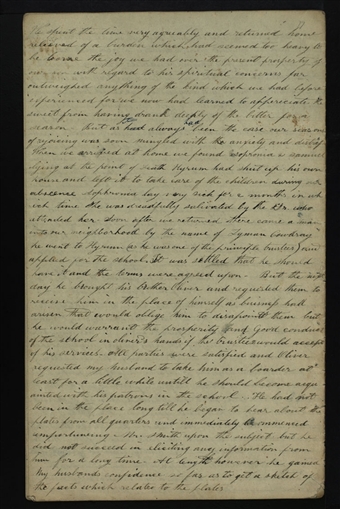 We spent the time very agreeably and returned home
relieved of a burden which had seemed too heavy to
be borne the joy we had over the present prosperity of
our son with regard to his spiritual concerns far
outweighed anything of the kind which we had before
experienced for we now had learned to appreciate the
sweet from having drank deeply of the bitter for a
season. But as had always been the case our season
of rejoicing was soon mingled with the anxiety and
when we arrived at home we found Sophronia &
lying at the point of death Hyrum had shut up his own
room and left it to take care of the children during our
absence Sophronia lay very sick for 2 months in wh
ich time she was dreadfully salivated by the Dr. who
attended her Soon after we returned there came a man
into our neighborhood by the name of Lyman Cowdray
he went to Hyrum (as he was one of the principle trustees) and
applied for the school. It was settled that he should
have it and the terms were agreed upon. But the next
day he brought his Brother Oliver and requested them to
receive him in the place of himself as buisness had
arisen that would oblige him to disapoint them but
he would warrant the prosperity and Good conduct
of the school in oliver's hands if the trustees would accept
of his services. All parties were satisfied and Oliver
requested my husband to take him as a boarder at
least for a little while untill he should become acqu
ainted with his patrons in the school. He had not
been in the place long till he began to hear about the
plates from all quarters and immediately he commenced
importuneing Mr. Smith upon the subject but he
did not succeed in eliciting any information from
him for a long time. At length however he gained
My husbands confidence so far as to get a sketch of
the facts which relates to the plates